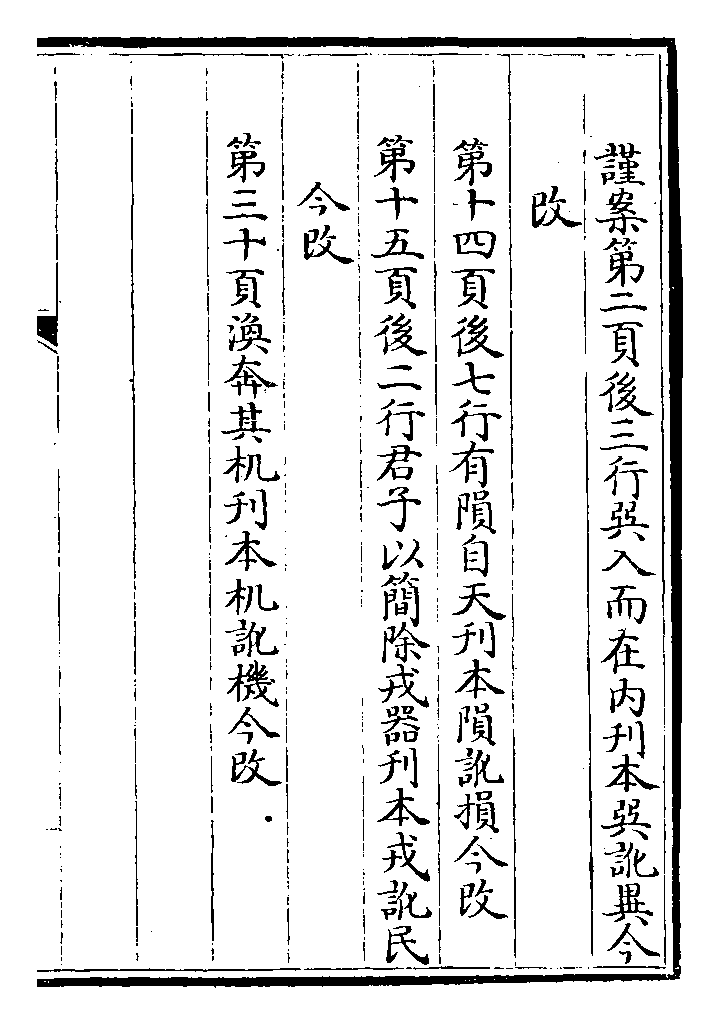 謹案第二頁後三行巽入而在内刋本巽訛異今
改
第十四頁後七行有隕自天刋本隕訛損今改
第十五頁後二行君子以簡除戎器刋本戎訛民
今改
第三十頁渙奔其机刋本机訛機今改